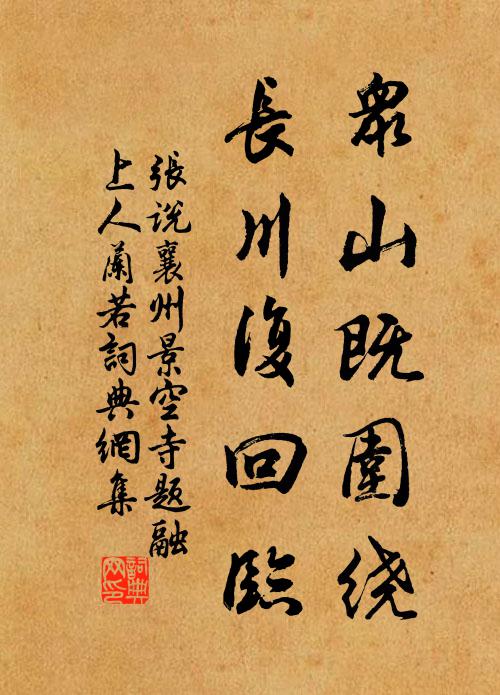 眾山既圍绕
長川復回臨
張说襄州景空寺題融
上人蘭若詞典網集
詞典网印